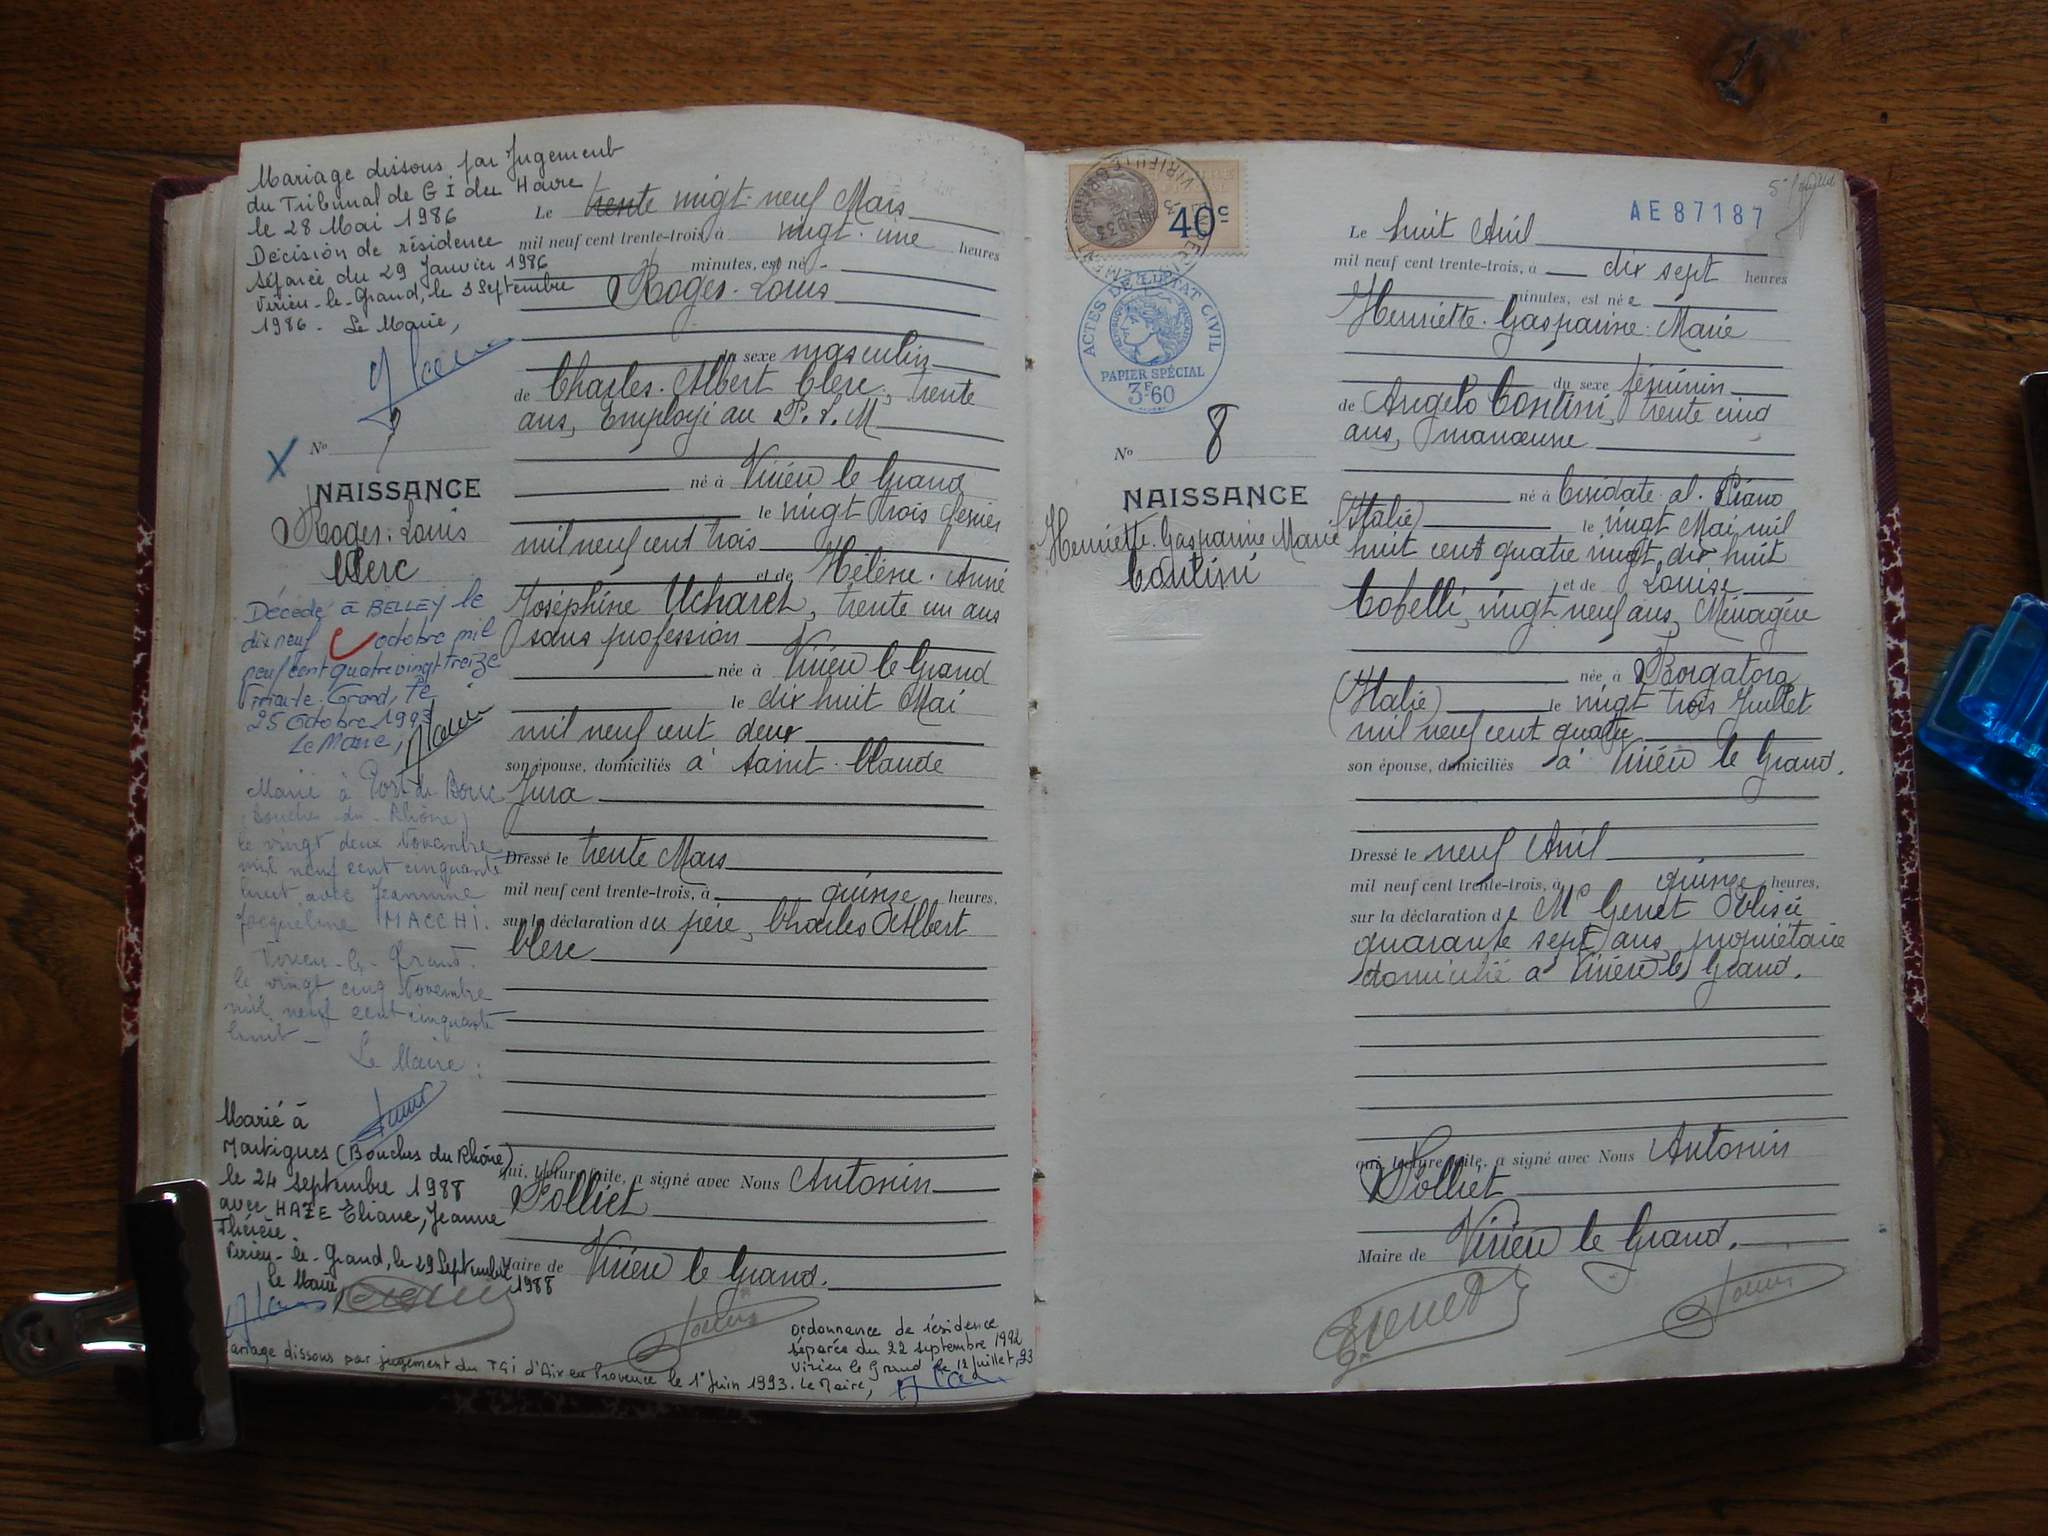 Mariage dissous par Jugement
du Tribunal de G I du Havre
le 28 Mai 1986
Décision de résidence
séparée du 29 Janvier 1986
Virieu-le-Grand, le 3 Septembre
1986 - Le Maire,
No 7
NAISSANCE
Roger-Louis
Clerc
Décédé à BELLEY le
dix neuf octobre mil
neuf cent quatre vingt treize
Virieu le Grand, le
25 Octobre 1993
Le Maire,
Marié à Port-de-Bouc
(Bouches-du-Rhône)
le vingt deux Novembre
mil neuf cent cinquante
huit avec Jeannine
Jacqueline MACCHI.
Virieu-le-Grand.
le vingt cinq Novembre
mil neuf cent cinquante
huit -
Le Maire :
Marié à
Martigues (Bouches du Rhône)
le 24 Septembre 1988
avec HAZE Eliane, Jeanne
Thérèse
Virieu-le-Grand, le 29 Septembre
1988
le Maire
Mariage dissous par jugement du TGI d'Aix en Provence le 1er Juin 1993. Le Maire,
Ordonnance de résidence
séparée du 22 septembre 1992
Virieu le Grand le 12 Juillet 93
Le trente vingt-neuf Mars
mil neuf cent trente-trois, à vingt-une heures
minutes, est né
Roger-Louis
du sexe masculin
de Charles-Albert Clerc, trente
ans, Employé au P.L.M
né à Virieu le Grand
le vingt trois février
mil neuf cent trois
et de Hélène-Anne
Joséphine Ucharet, trente un ans
sans profession
née à Virieu le Grand
le dix huit Mai
mil neuf cent deux
son épouse, domiciliés à Saint-Claude
Jura
Dressé le trente Mars
mil neuf cent trente-trois, à quinze heures,
sur la déclaration du père, Charles Albert
Clerc
qui, lecture faite, a signé avec Nous Antonin
Folliet
Maire de Virieu le Grand.
40c
1933
ACTES DE L'ÉTAT CIVIL
PAPIER SPÉCIAL
3F60
No 8
NAISSANCE
Henriette-Gasparine Marie
Contini
AE 87187
Le huit Avril
mil neuf cent trente-trois, à dix sept heures
minutes, est née
Henriette-Gasparine-Marie
du sexe féminin
de Angelo Contini, trente cinq
ans, manœuvre
né à Cividate-al-Piano
(Italie) le vingt Mai mil
huit cent quatre vingt dix huit
et de Louise
Cobelli, vingt neuf ans, Ménagère
née à
(Italie) le vingt trois Juillet
mil neuf cent quatre
son épouse, domiciliés à Virieu le Grand.
Dressé le neuf Avril
mil neuf cent trente-trois, à quinze heures,
sur la déclaration de Mr Genet
quarante sept ans, propriétaire
domicilié à Virieu le Grand.
qui, lecture faite, a signé avec Nous Antonin
Folliet
Maire de Virieu le Grand.